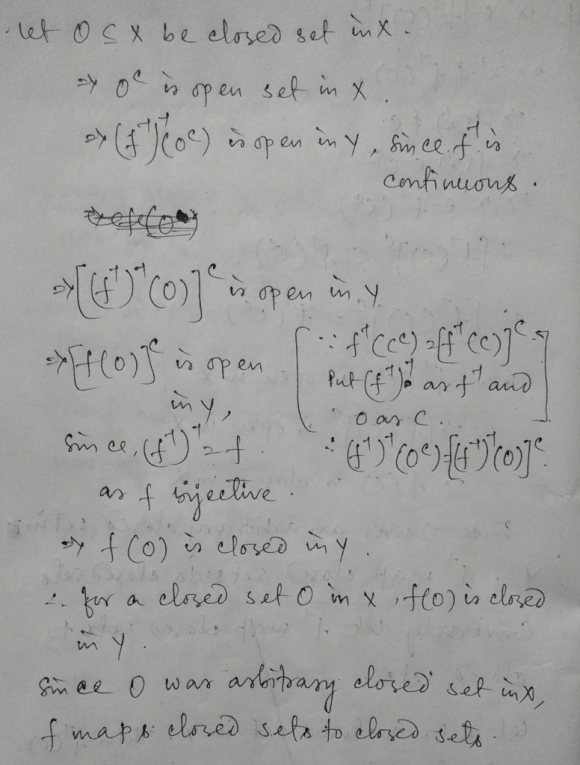 . Let O ⊆ X be closed set in X.
⇒ Oᶜ is open set in X.
⇒ (f⁻¹)⁻¹(Oᶜ) is open in Y, since f⁻¹ is
continuous.
⇒ [(f⁻¹)⁻¹(O)]ᶜ is open in Y
⇒ [f(O)]ᶜ is open
in Y,
since, (f⁻¹)⁻¹ = f.
as f bijective.
[∵ f⁻¹(Cᶜ) = [f⁻¹(C)]ᶜ.
Put (f⁻¹)⁻¹ as f⁻¹ and
O as C.]
∴ (f⁻¹)⁻¹(Oᶜ) = [(f⁻¹)⁻¹(O)]ᶜ.
⇒ f(O) is closed in Y.
∴ for a closed set O in X, f(O) is closed
in Y.
Since O was arbitrary closed set in X,
f maps closed sets to closed sets.